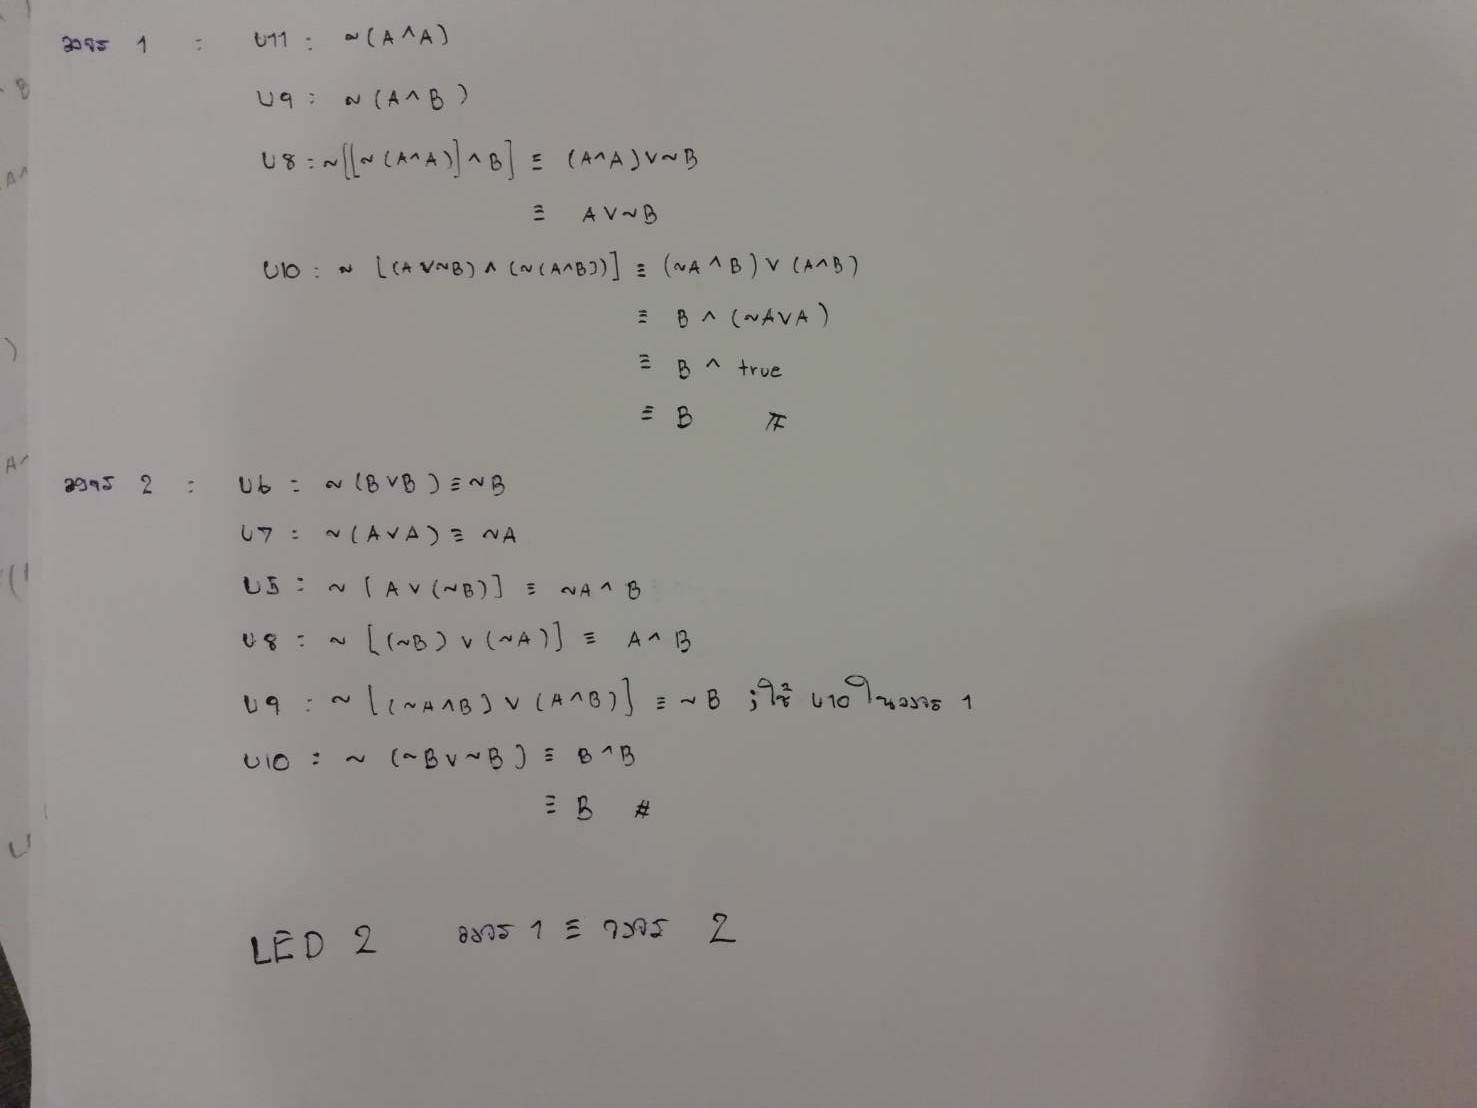 วงจร 1 : U11 : ~(A^A)
U9 : ~(A^B)
U8 : ~[[~(A^A)]^B] ≡ (A^A)∨~B
≡ A∨~B
U10 : ~[(A∨~B)^(~(A^B))] ≡ (~A^B)∨(A^B)
≡ B^(~A∨A)
≡ B^true
≡ B #
วงจร 2 : U6 : ~(B∨B) ≡ ~B
U7 : ~(A∨A) ≡ ~A
U5 : ~[A∨(~B)] ≡ ~A^B
U8 : ~[(~B)∨(~A)] ≡ A^B
U9 : ~[(~A^B)∨(A^B)] ≡ ~B ; ใช้ U10 ในวงจร 1
U10 : ~(~B∨~B) ≡ B^B
≡ B #
LED 2 วงจร 1 ≡ วงจร 2